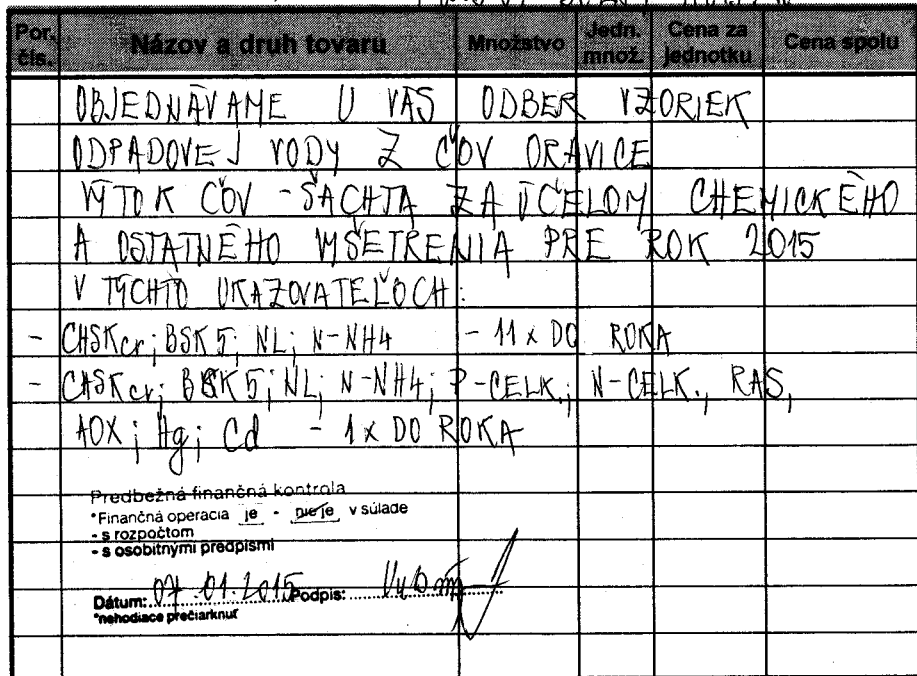 Por. čís. Názov a druh tovaru Množstvo Jedn. množ. Cena za jednotku Cena spolu
OBJEDNÁVAME U VÁS ODBER VZORIEK
ODPADOVEJ VODY Z ČOV ORAVICE
VÝTOK ČOV - ŠACHTA ZA ÚČELOM CHEMICKÉHO
A OSTATNÉHO VYŠETRENIA PRE ROK 2015
V TÝCHTO UKAZOVATEĽOCH:
- CHSKcr; BSK 5; NL; N-NH4 - 11 x DO ROKA
- CHSKcr; BSK 5; NL; N-NH4; P-CELK.; N-CELK., RAS,
AOX; Hg; Cd - 1x DO ROKA
Predbežná finančná kontrola
*Finančná operacia je - nie je v súlade
- s rozpočtom
- s osobitnými predpismi
Dátum: 07.01.2015 Podpis:
*nehodiace prečiarknuť